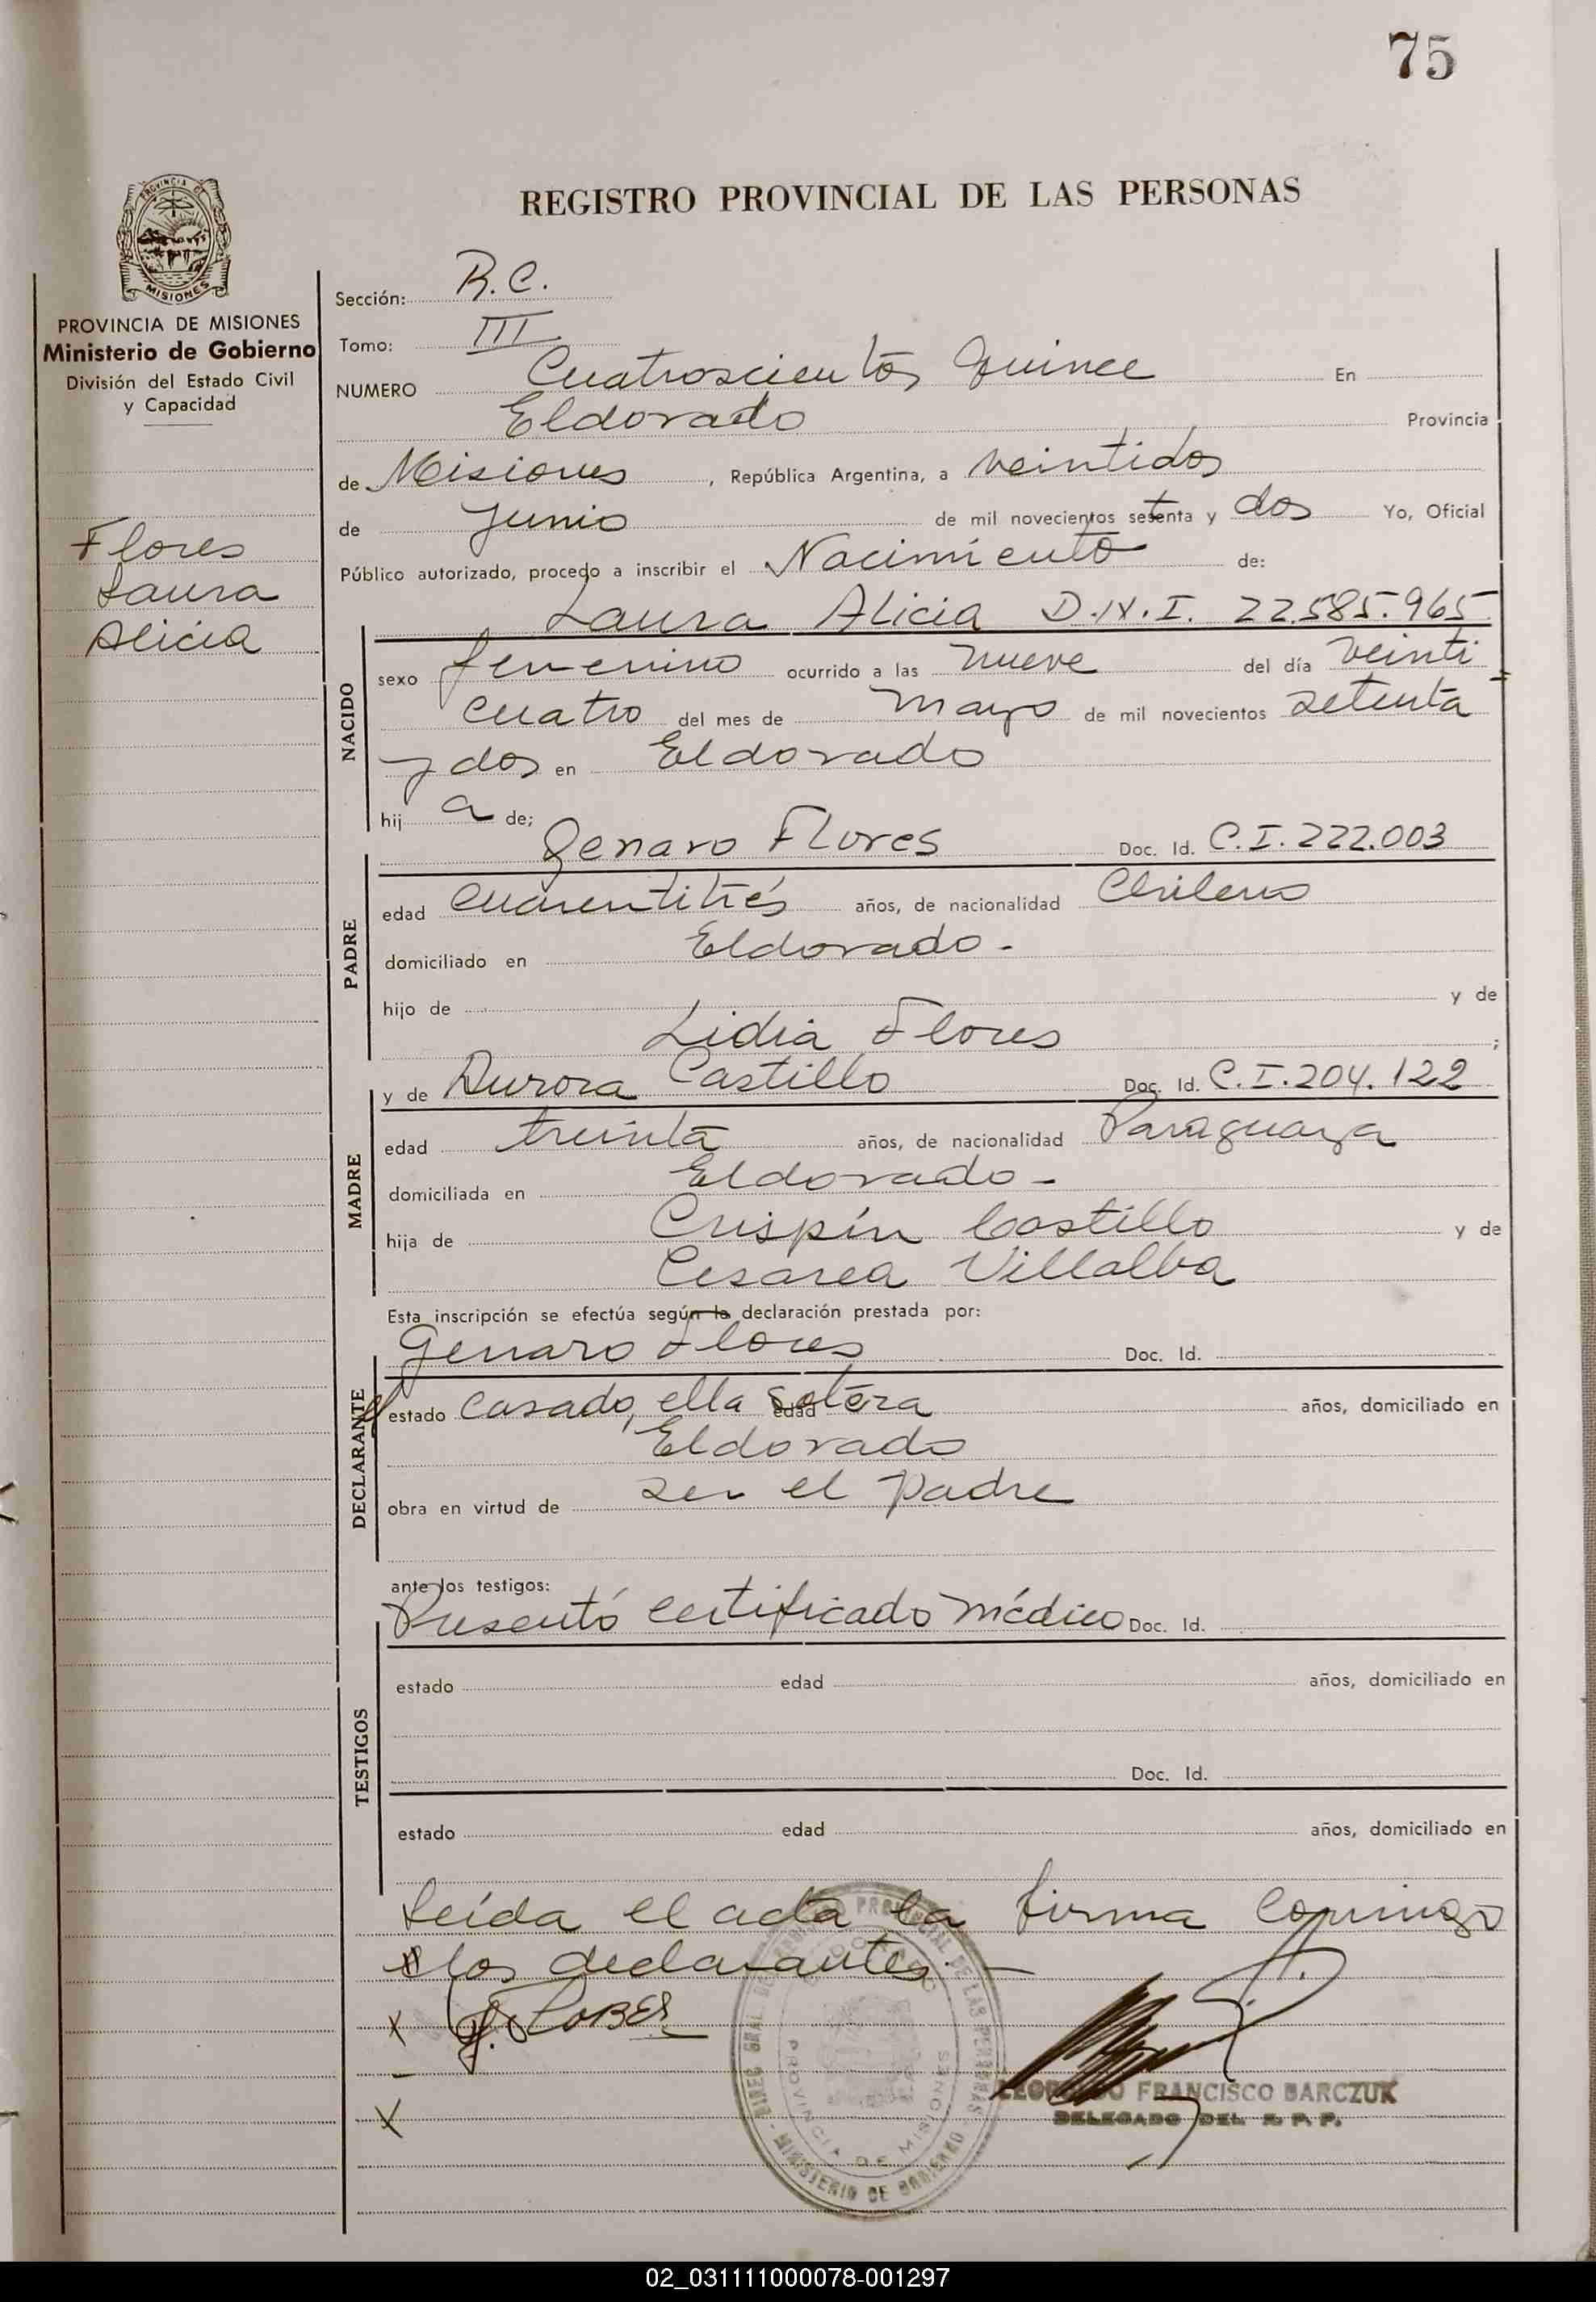 75
REGISTRO PROVINCIAL DE LAS PERSONAS
PROVINCIA DE MISIONES
Ministerio de Gobierno
División del Estado Civil
y Capacidad
Flores
Laura
Alicia
Sección: R.C.
Tomo: III
NUMERO Cuatroscientos Quince En
Eldorado Provincia
de Misiones, República Argentina, a veintidos
de Junio de mil novecientos setenta y dos Yo, Oficial
Público autorizado, procedo a inscribir el Nacimiento de:
Laura Alicia D.N.I. 22.585.965
NACIDO
sexo femenino ocurrido a las nueve del día veinti
cuatro del mes de mayo de mil novecientos setenta
y dos en Eldorado
hij a de;
Genaro Flores Doc. Id. C.I. 222.003
PADRE
edad cuarentitrés años, de nacionalidad Chileno
domiciliado en Eldorado.-
hijo de y de
Lidia Flores ;
y de Aurora Castillo Doc. Id. C.I. 204.122
MADRE
edad treinta años, de nacionalidad Paraguaya
domiciliada en Eldorado-
hija de Crispín Castillo y de
Cesarea Villalba
Esta inscripción se efectúa según la declaración prestada por:
Genaro Flores Doc. Id.
DECLARANTE
el estado casado, ella soltera edad años, domiciliado en
Eldorado
obra en virtud de ser el padre
ante los testigos:
Presentó certificado médico Doc. Id.
TESTIGOS
estado edad años, domiciliado en
Doc. Id.
estado edad años, domiciliado en
Leída el acta la firma conmigo
los declarantes.-
X
X
PROVINCIA DE MISIONES
MINISTERIO DE GOBIERNO
FRANCISCO BARCZUK
DELEGADO DEL R. P. P.
02_031111000078-001297